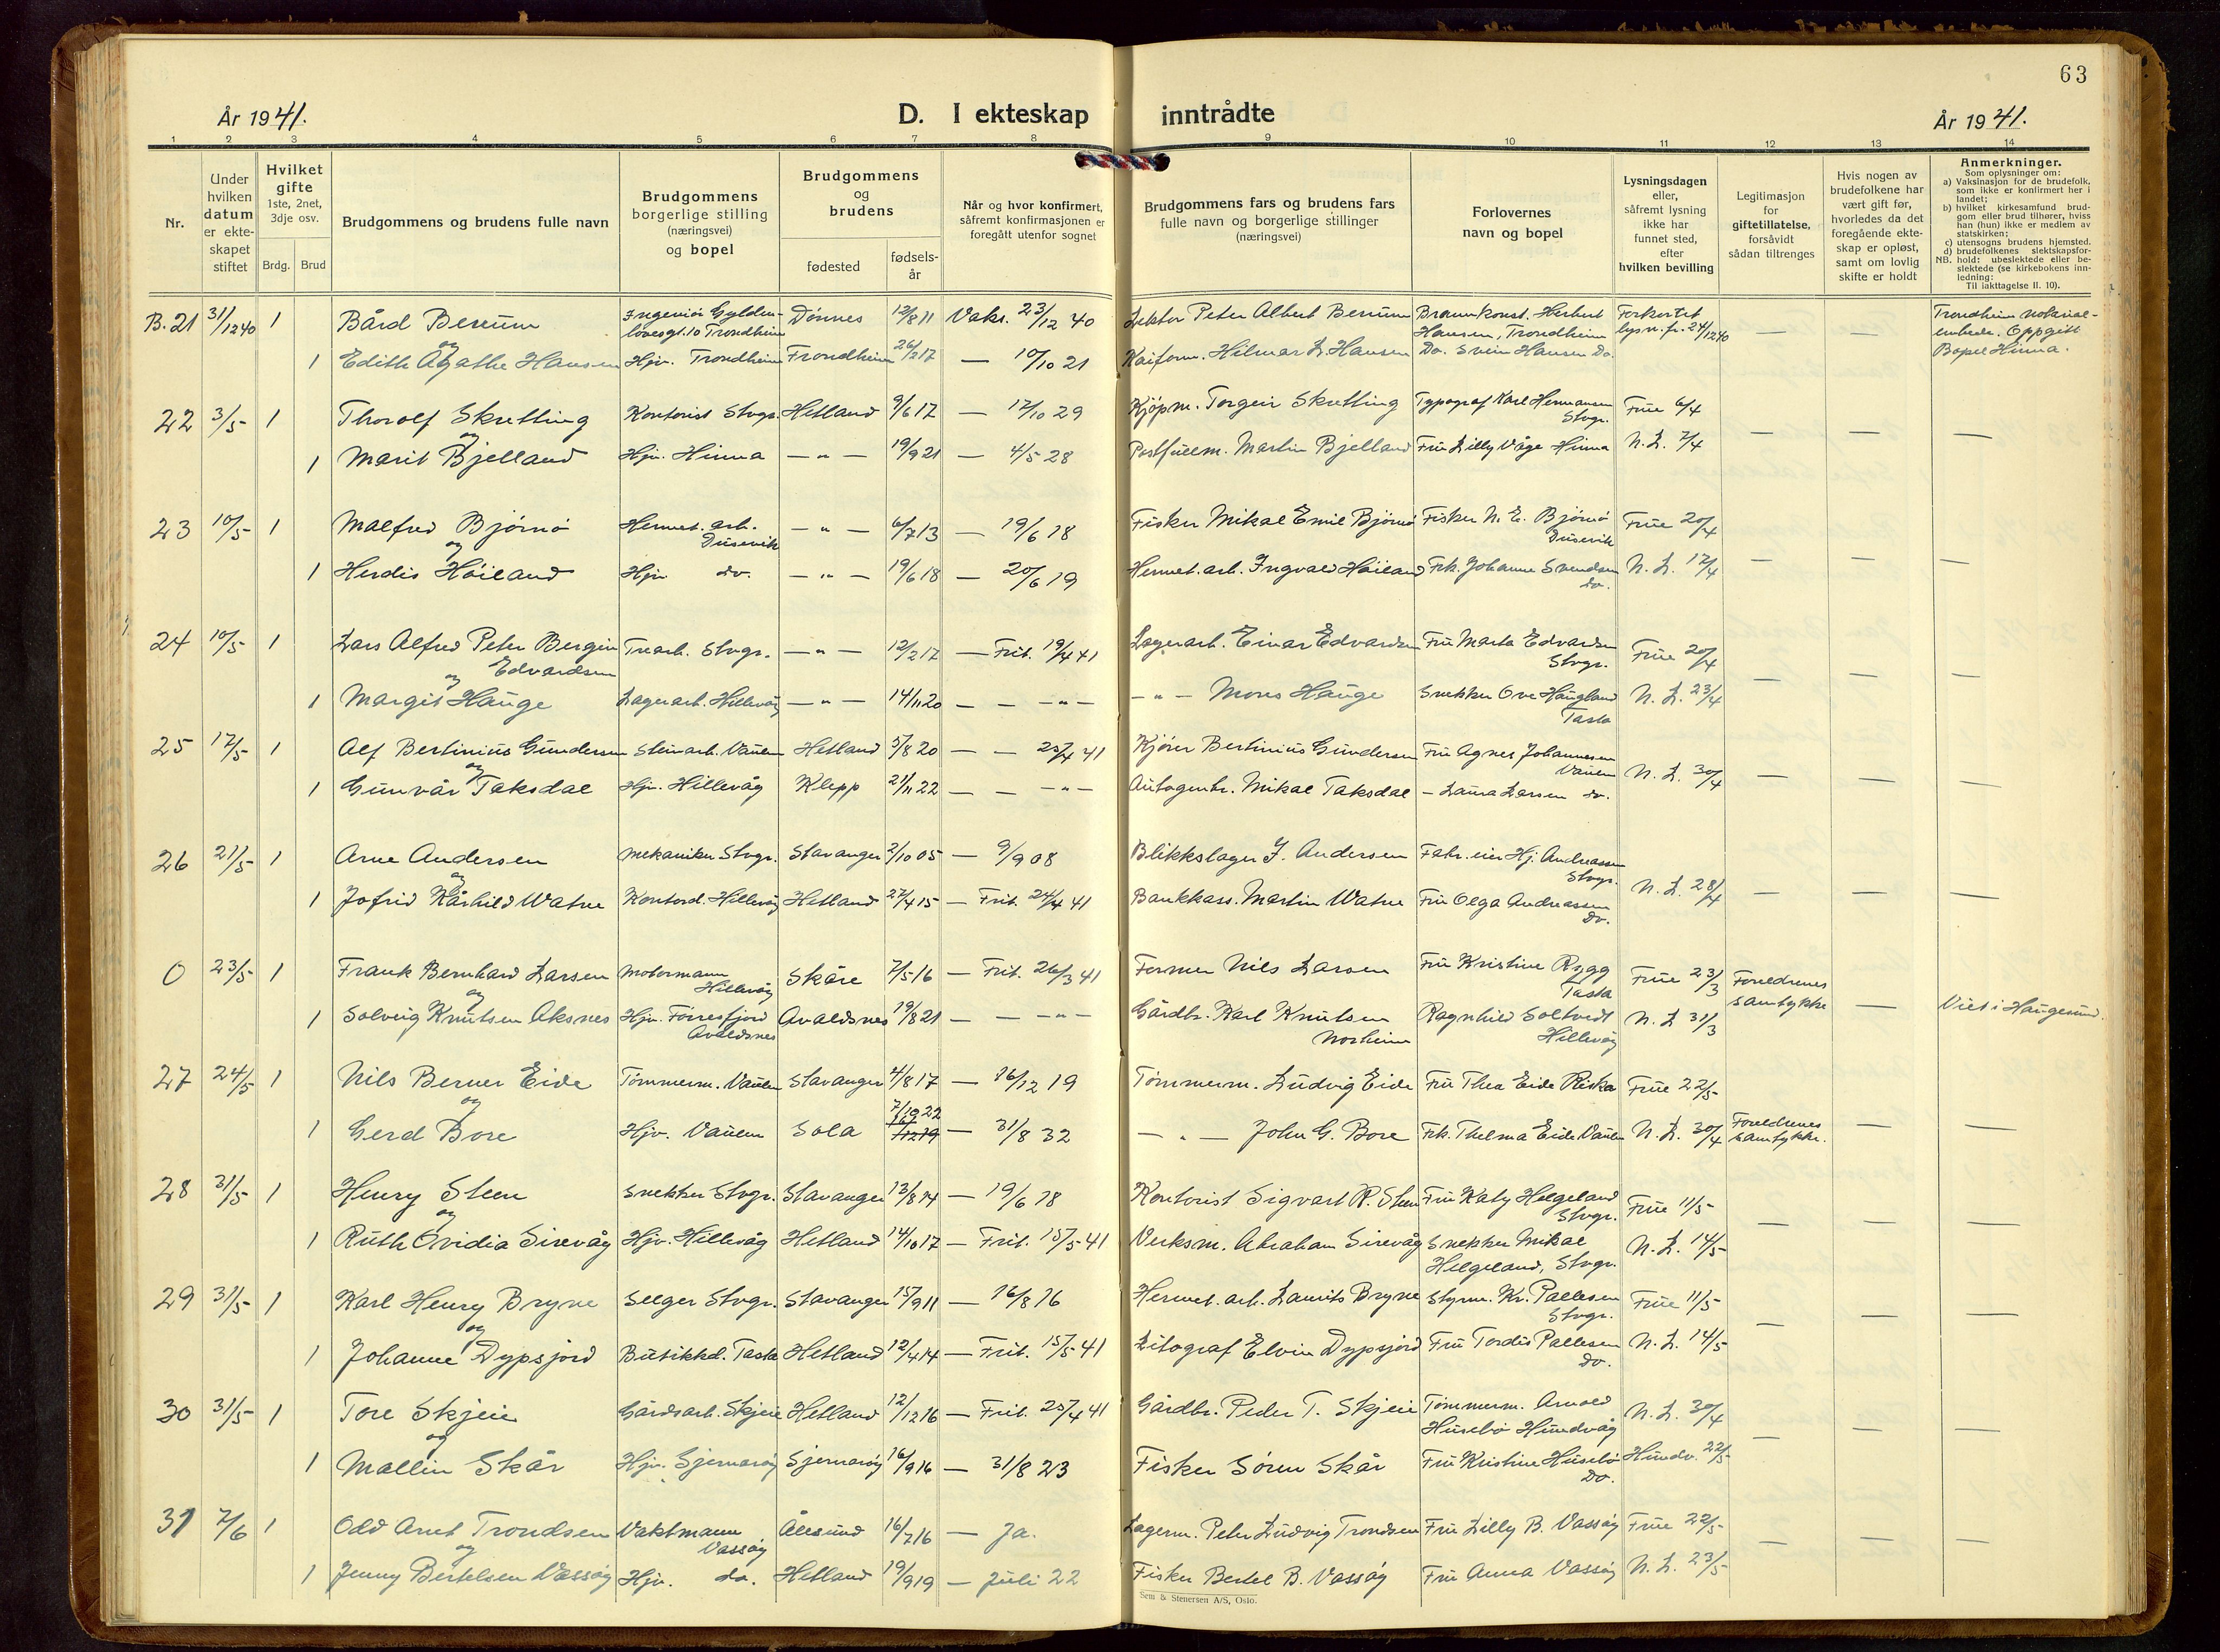 63
År 1941.
D. I ekteskap inntrådte
År 1941.
1 2 3 4 5 6 7 8 9 10 11 12 13 14
Nr.
Under hvilken datum er ekteskapet stiftet
Hvilket gifte 1ste, 2net, 3dje osv.
Brdg. Brud
Brudgommens og brudens fulle navn
Brudgommens borgerlige stilling (næringsvei) og bopel
Brudgommens og brudens
fødested
fødsels-år
Når og hvor konfirmert, såfremt konfirmasjonen er foregått utenfor sognet
Brudgommens fars og brudens fars fulle navn og borgerlige stillinger (næringsvei)
Forlovernes navn og bopel
Lysningsdagen eller, såfremt lysning ikke har funnet sted, efter hvilken bevilling
Legitimasjon for giftetillatelse, forsåvidt sådan tiltrenges
Hvis nogen av brudefolkene har vært gift før, hvorledes da det foregående ekteskap er opløst, samt om lovlig skifte er holdt
Anmerkninger.
Som oplysninger om:
a) Vaksinasjon for de brudefolk, som ikke er konfirmert her i landet;
b) hvilket kirkesamfund brudgom eller brud tilhører, hviss han (hun) ikke er medlem av statskirken;
c) utensogns brudens hjemsted.
d) brudefolkenes slektskapsforhold: ubeslektede eller beslektede (se kirkebokens innledning:
NB.
Til iakttagelse II. 10).
B. 21 31/12 40 1 Bård Berum Ingeniør Gyldenløvesgt. 10 Trondheim Dønnes 12/8 11 Vaks. 23/12 40 Lektor Peter Albert Berum Hansen, Trondheim Forkortet lysn. fr. 24/12 40 — — Trondheim notarialembede. Oppgitt Bopel Hinna.
og
1 Edith Agathe Hansen Hjv. Trondheim Trondheim 26/2 17 — 10/10 21 Hilmar L. Hansen Do. Svein Hansen Do.
22 3/5 1 Thorolf Skretting Kontorist Stvgr. Hetland 9/6 17 — 17/10 29 Kjøpm. Torgeir Skretting Typograf Karl Hermansen Stvgr. Frue 6/4 — — —
og
1 Marit Bjelland Hjv. Hinna — " — 19/9 21 — 4/5 28 Postfullm. Martin Bjelland Fru Lilly Våge Hinna N. L. 7/4
23 10/5 1 Malfred Bjørnø Hermet. arb. Dusevik — " — 6/7 13 — 19/6 18 Fisker Mikal Emil Bjørnø Fisker N. E. Bjørnø Dusevik Frue 20/4 — — —
og
1 Herdis Høiland Hjv do. — " — 19/6 18 — 20/6 19 Hermet. arb. Ingvald Høiland Frk. Johanne Svendsen do. N. L. 17/4
24 10/5 1 Lars Alfred Peter Bergin Edvardsen Trearb. Stvgr. — " — 12/2 17 — Frit. 19/4 41 Lagerarb. Einar Edvardsen Fru Marta Edvardsen Stvgr. Frue 20/4 — — —
og
1 Margit Hauge Lagerarb. Hillevåg — " — 14/11 20 — — — " — — " — Mons Hauge Snekker Ove Haugland Tasta N. L. 23/4
25 17/5 1 Alf Bertinius Gundersen Steinarb. Vaulen Hetland 5/8 20 — — 25/4 41 Kjører Bertinius Gundersen Fru Agnes Johannessen Vaulen N. L. 30/4 — — —
og
1 Gunvår Taksdal Hjv. Hillevåg Klepp 21/11 22 — — — " — Autogenbr. Mikal Taksdal — Laura Larsen do.
26 21/5 1 Arne Andersen Mekaniker Stvgr. Stavanger 2/10 05 — 9/9 08 Blikkslager J. Andersen Fabr. eier Hj. Andreassen Stvgr. N. L. 28/4 — — —
og
1 Jofrid Kårhild Watne Kontord. Hillevåg Hetland 27/4 15 — Frit. 24/4 41 Bankkass. Martin Watne Fru Olga Andreassen do.
0 23/5 1 Frank Bernhard Larsen Motormann Hillevåg Skåre 7/5 16 — Frit. 26/3 41 Former Nils Larsen Fru Kristine Rygg Tasta Frue 23/3 Foreldrenes samtykke — Viet i Haugesund.
og
1 Solveig Knutsen Aksnes Hjv. Førresfjord Avaldsnes Avaldsnes 19/8 21 — — — " — Gårdbr. Karl Knutsen Norheim Ragnhild Soltvedt Hillevåg N. L 31/3
27 24/5 1 Nils Berner Eide Tømmerm. Vaulen Stavanger 4/8 17 — 16/12 19 Tømmerm. Ludvig Eide Fru Thea Eide Riska Frue 22/5 — —
og
1 Gerd Bore Hjv. Vaulen Sola 7/10 22 — 31/8 32 — " — John G. Bore Frk. Thelma Eide Vaulen N. L. 30/4 Foreldrenes samtykke.
28 31/5 1 Henry Steen Snekker Stvgr. Stavanger 13/8 14 — 19/6 18 Kontorist Sigvart R. Steen Fru Katy Helgeland Stvgr. Frue 11/5 — — —
og
1 Ruth Ovidia Sirevåg Hjv. Hillevåg Hetland 14/10 17 — Frit. 15/5 41 Verksm. Abraham Sirevåg Snekker Mikal Helgeland, Stvgr. N. L. 14/5
29 31/5 1 Karl Henry Bryne Selger Stvgr. Stavanger 15/9 11 — 16/8 16 Hermet. arb. Laurits Bryne Styrm. Kr. Pallesen Stvgr. Frue 11/5 — — —
og
1 Johanne Dypsjord Butikkd. Tasta Hetland 12/4 14 — Frit. 15/5 41 Litograf Elvin Dypsjord Fru Tordis Pallesen do. N. L. 14/5
30 31/5 1 Tore Skjeie Gårdsarb. Skjeie Hetland 12/12 16 — Frit. 25/4 41 Gårdbr. Peder T. Skjeie Tømmerm. Arnold Husebø Hundvåg N. L. 30/4 — — —
og
1 Mallin Skår Hjv. Sjernarøy Sjernarøy 16/9 16 — 31/8 23 Fisker Sören Skår Fru Kristine Husebø Do. Hundv. 22/5
31 7/6 1 Odd Arnt Trondsen Vaktmann Vassøy Ålesund 16/7 16 — Ja. Lagerm. Peter Ludvig Trondsen Fru Lilly B. Vassøy Frue 22/5 — — —
og
1 Jenny Bertelsen Vassøy Hjv. do. Hetland 19/9 19 — Juli 22 Fisker Bertel B. Vassøy Fru Anna Vassøy N. L. 23/5
Sem & Stenersen A/S, Oslo.